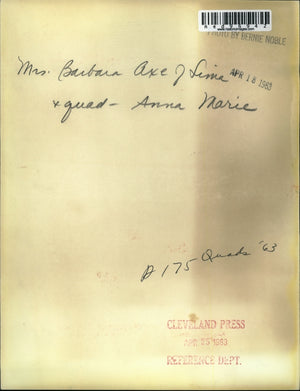 PHOTO BY BERNIE NOBLE
APR 18 1963
Mrs. Barbara Axe of Lima
& quad - Anna Marie
P 175 Quads '63
CLEVELAND PRESS
APR 25 1963
REFERENCE DEPT.